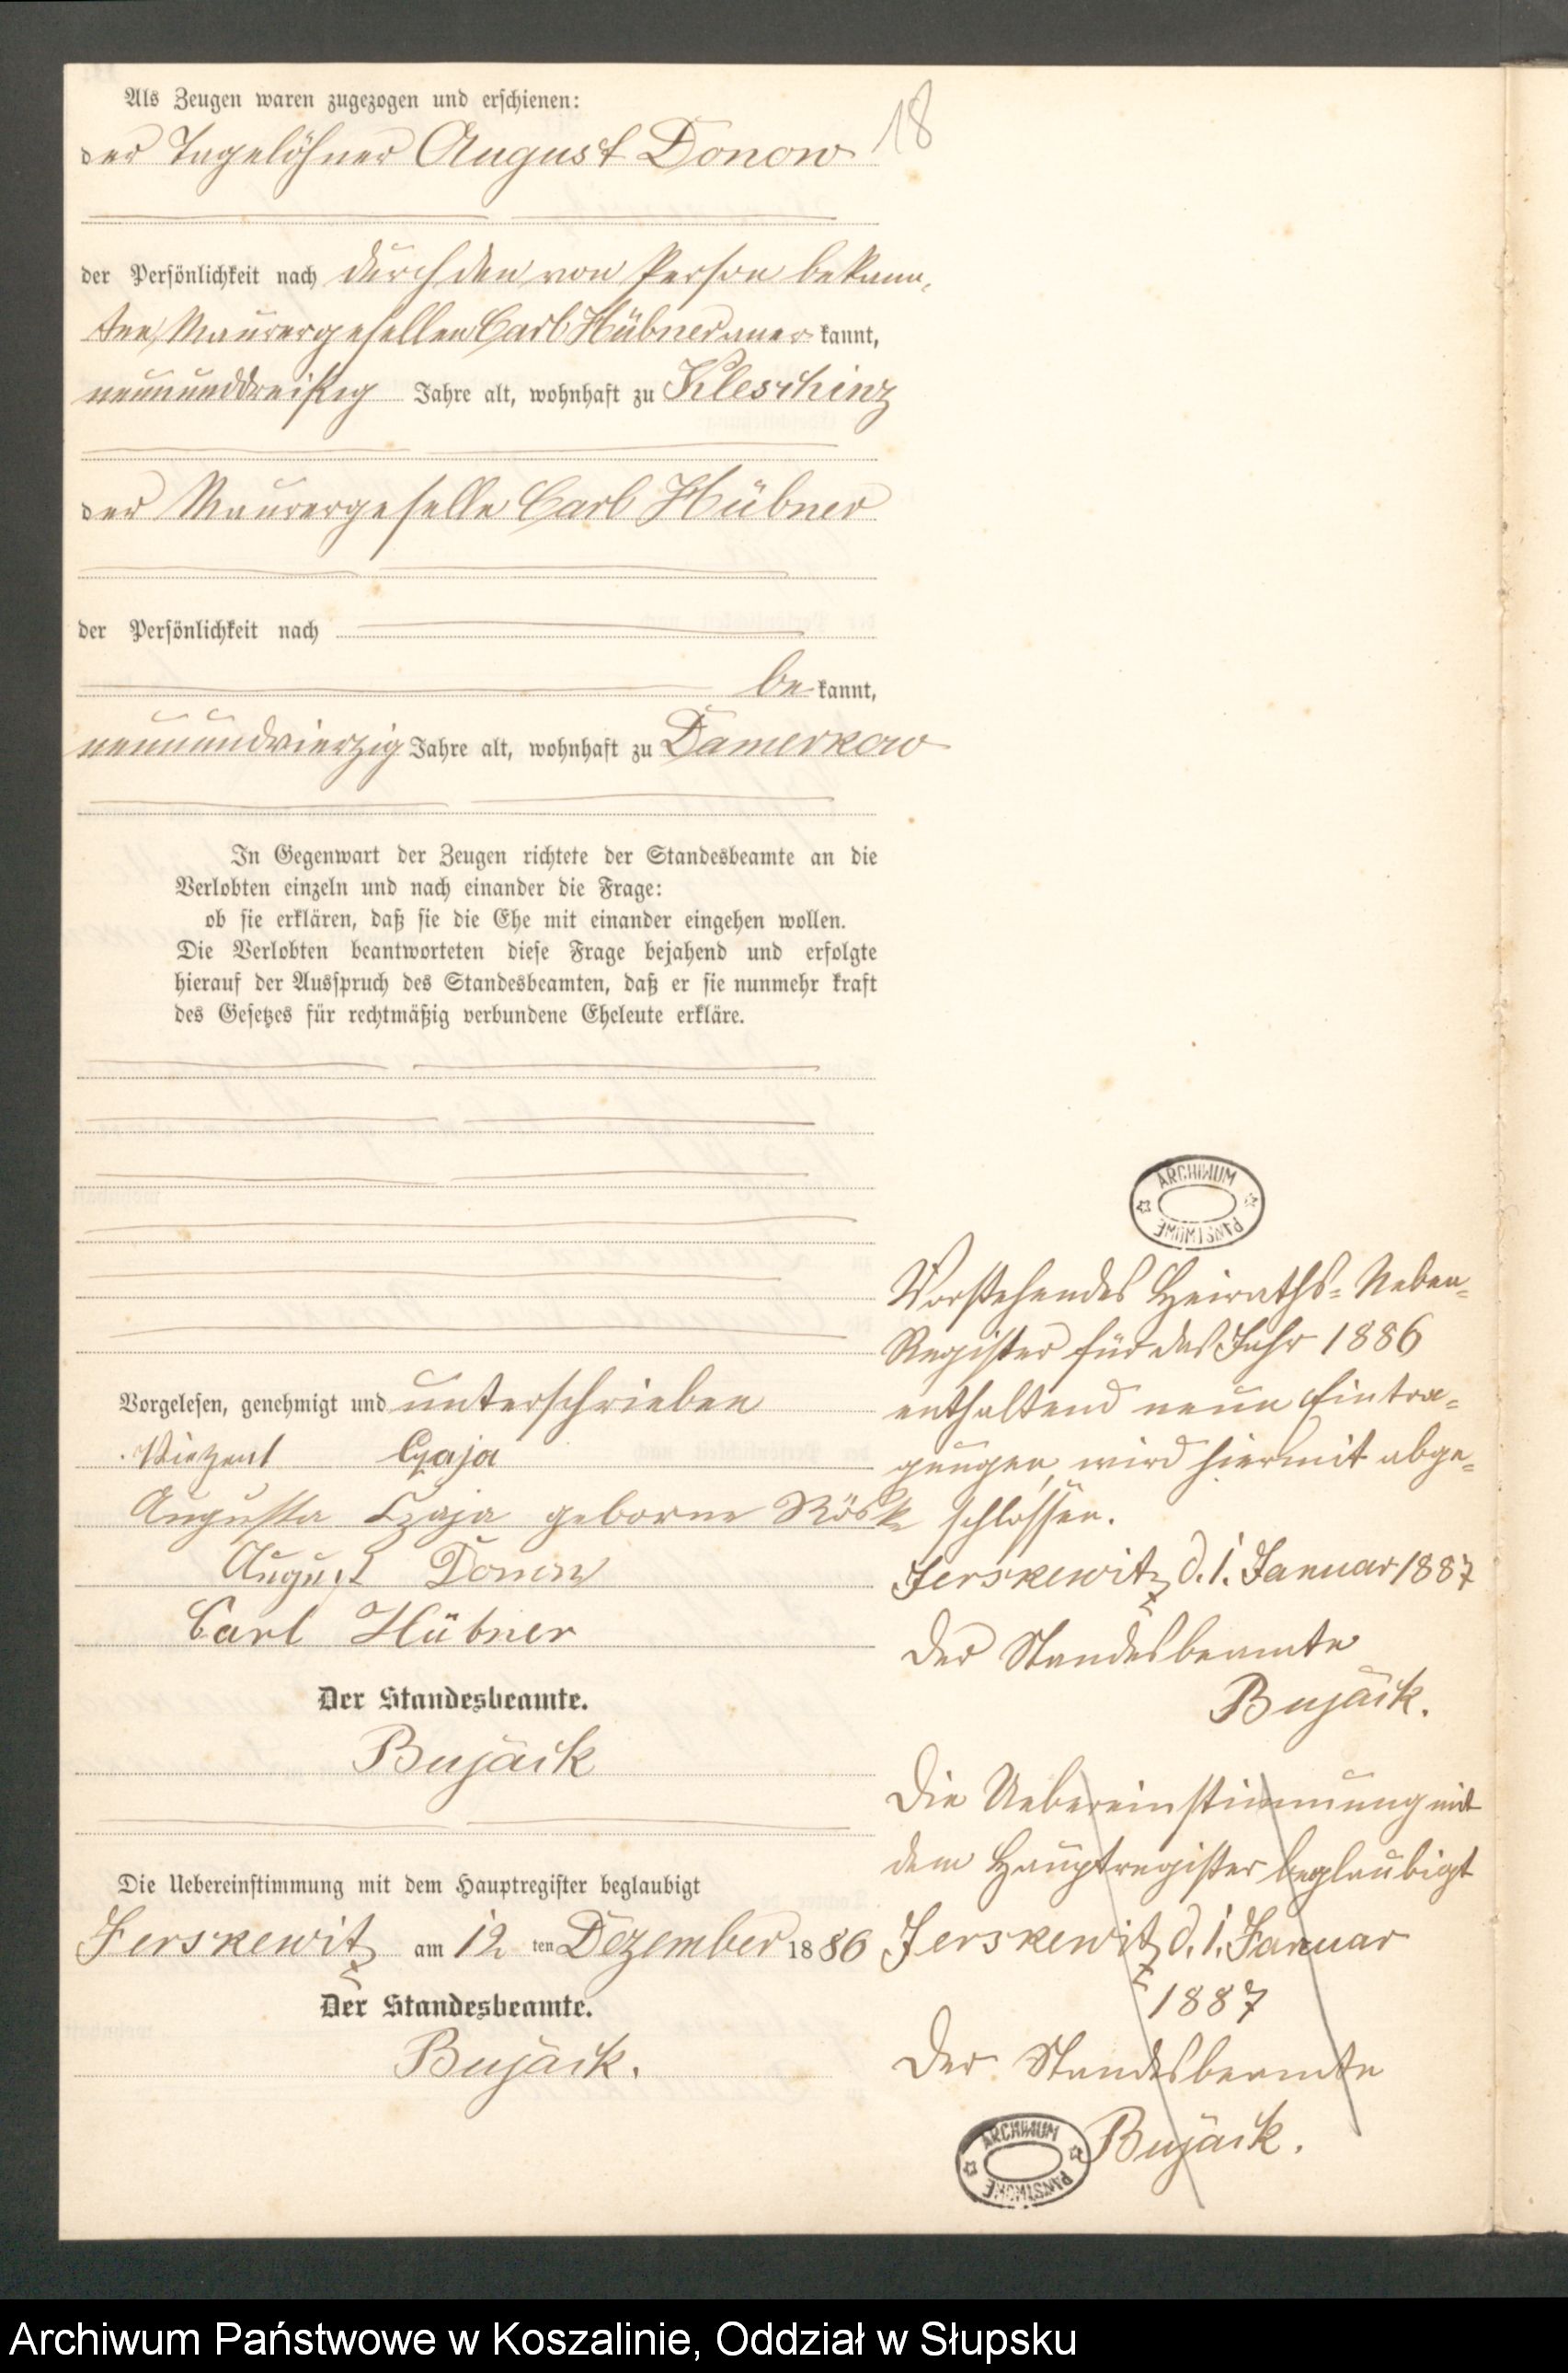 18
Als Zeugen waren zugezogen und erschienen:
der Tagelöhner August Donow
der Persönlichkeit nach durch den von Person bekann-
ten Maurergesellen Carl Hübner aner kannt,
neununddreißig Jahre alt, wohnhaft zu Kleschinz
der Maurergeselle Carl Hübner
der Persönlichkeit nach
be kannt,
neunundvierzig Jahre alt, wohnhaft zu Damerkow
In Gegenwart der Zeugen richtete der Standesbeamte an die
Verlobten einzeln und nach einander die Frage:
ob sie erklären, daß sie die Ehe mit einander eingehen wollen.
Die Verlobten beantworteten diese Frage bejahend und erfolgte
hierauf der Ausspruch des Standesbeamten, daß er sie nunmehr kraft
des Gesetzes für rechtmäßig verbundene Eheleute erkläre.
Vorgelesen, genehmigt und unterschrieben
Vinzent Czaja
Augusta Czaja geborne Röske
August Donow
Carl Hübner
Der Standesbeamte.
Bujack
Die Uebereinstimmung mit dem Hauptregister beglaubigt
Jerskewitz am 12 ten Dezember 1886
Der Standesbeamte.
Bujack.
ARCHIWUM PAŃSTWOWE
Vorstehendes Heiraths-Neben-
Register für das Jahr 1886
enthaltend neun Eintra-
gungen, wird hiermit abge-
schlossen.
Jerskewitz d. 1. Januar 1887
Der Standesbeamte
Bujack.
Die Uebereinstimmung mit
dem Hauptregister beglaubigt
Jerskewitz d. 1. Januar
1887
Der Standesbeamte
Bujack.
ARCHIWUM PAŃSTWOWE
Archiwum Państwowe w Koszalinie, Oddział w Słupsku